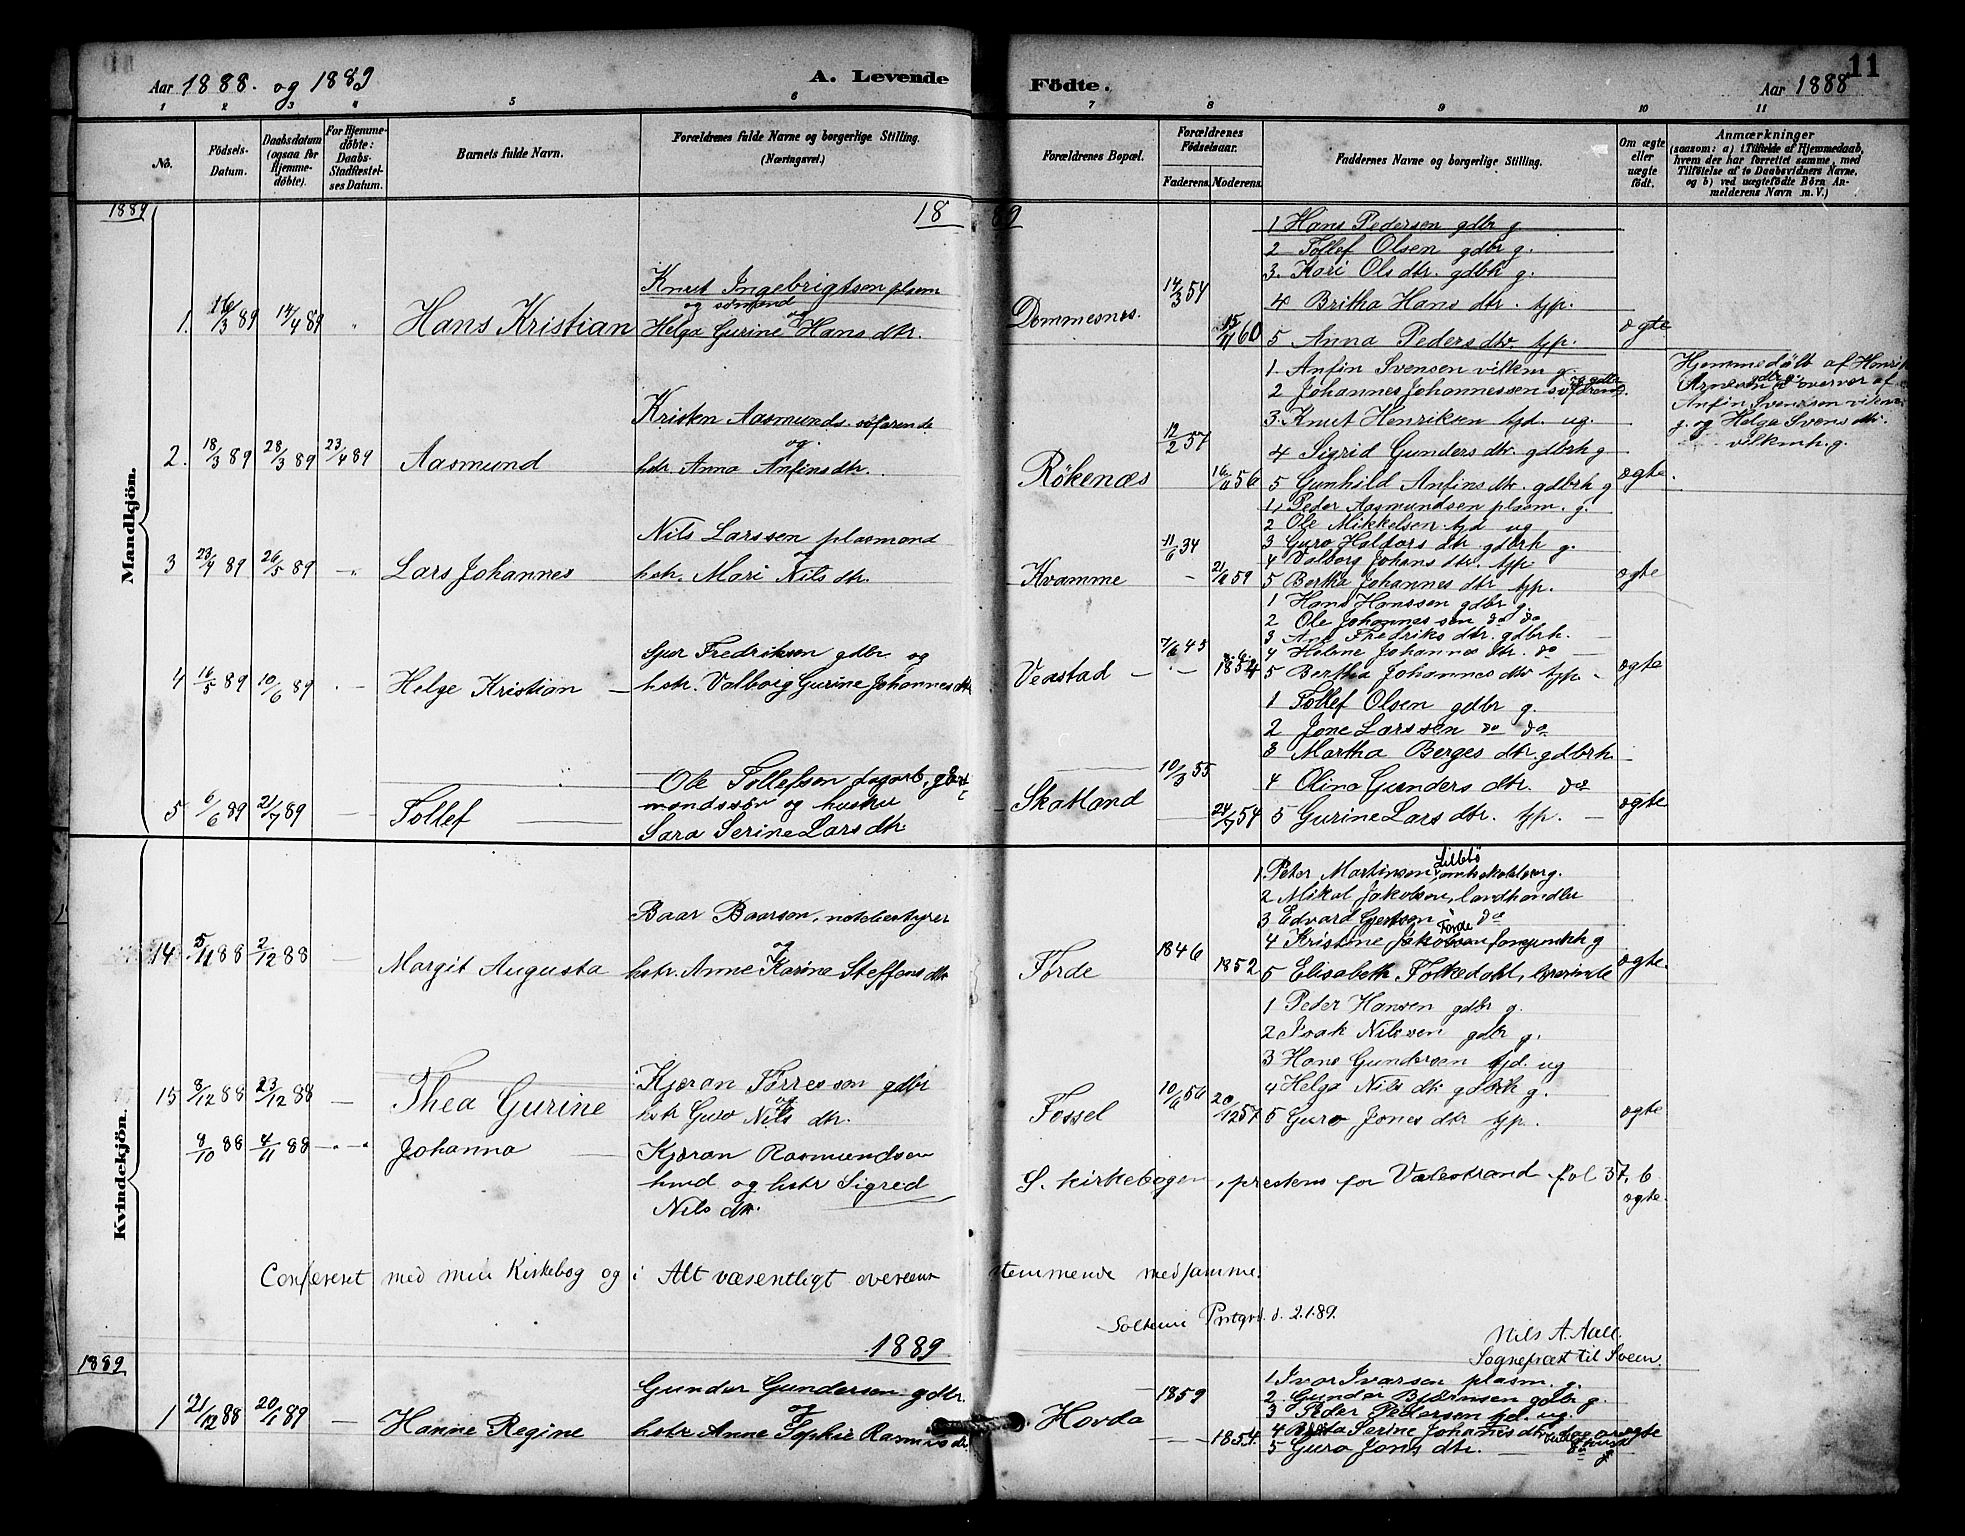 Aar 1888. og 1889
A. Levende
Födte.
Aar 1888
11
1 2 3 4 5 6 7 8 9 10 11
No.
Födsels-
Datum.
Daabsdatum
(ogsaa for
Hjemme-
döbte).
For Hjemme-
döbte:
Daabs-
Stadfæstel-
ses Datum.
Barnets fulde Navn.
Forældrenes fulde Navne og borgerlige Stilling.
(Næringsvei.)
Forældrenes Bopæl.
Forældrenes
Födselsaar.
Faderens. Moderens.
Faddernes Navne og borgerlige Stilling.
Om ægte
eller
uægte
födt.
Anmærkninger
(saasom: a) i Tilfælde af Hjemmedaab,
hvem der har forrettet samme, med
Tilföielse af to Daabsvidners Navne,
og b) ved uægtefödte Börn An-
melderens Navn m. V.)
1889
1889
Mandkjön.
1. 16/3 89 14/4 89 " Hans Kristian
Knut Ingebrigtsen plsm
og sömand og
Helga Gurine Hans dtr.
Dommesnes. 14/3 54 15/4 60
1 Hans Pedersen gdbr g
2 Tollef Olsen gdbr g.
3. Kari Ols dtr. gdbrh g.
4 Britha Hans dtr. tjp.
5 Anna Peders dtr. tjp.
ægte
2. 18/3 89 28/3 89 23/4 89 Aasmund
Kristen Aasmunds. söfarende
og
hstr. Anna Anfins dtr.
Rökenæs 12/2 57 56
1. Anfin Svensen vilkm g.
2 Johannes Johannessen og gdbr
3. Knut Henriksen tjd. ug.
4 Sigrid Gunders dtr. gdbrh g
5 Gunhild Anfins dtr. gdbrh g
ægte.
Hjemmedöbt af Henrik
Arnesen gdbr g. i overvær af
Anfin Svendsen vilkm
g. og Helga Svens dtr.
vilkmh. g.
3 23/4 89 26/5 89 -"- Lars Johannes
Nils Larssen plasmand
og
hstr. Mari Nils dtr.
Kvamme 11/6 34 59
1, Peder Aasmundsen plsm. g.
2 Ole Mikkelsen tjd ug
3 Guro Haldors dtr. gdbrh g.
4 Valborg Johans dtr. tjp
5 Bertha Johannes dtr tjp.
ægte
4 16/5 89 10/6 89 Helge Kristian
Sjur Fredriksen gdbr og
hstr. Valborg Gurine Johannes dtr
Veastad 7/6 45 1854
1 Hans Hanssen gdbr g.
2 Ole Johannessen do do
3 Ane Fredriks dtr. gdbrh.
4 Helene Johannes dtr. do
5 Bertha Johannes dtr tjp
ægte
5 6/6 89 21/7 89 Tollef
Ole Tollefsen dagarb, gbr
mandssön og hustru
Sara Serine Lars dtr
Skatland 10/3 55 24/7 54
1 Tollef Olsen gdbr g.
2 Jone Larssen do do
3 Martha Berges dtr. gdbrh
4 Olina Gunders dtr. do
5 Gurine Lars dtr. tjp.
ægte
Kvindekjön.
14 5/11 88 2/12 88 — Margit Augusta
Baar Baarsen, notebestyrer
og
hstr. Anne Karine Steffens dtr
Förde 1846 1852
1. Peter Martinsen
2 Mikal Jakobsen, landhandler
3 Edvard Gjertsen, do
4 Kristine Jakobsen g
5 Elisabeth Folkedahl,
ægte
15 8/12 88 23/12 88 — Thea Gurine
Kjeran Tørressen gdbr
og
hstr Guro Nils dtr.
Fossel 10/6 56 20/12 57
1 Peder Hansen gdbr g.
2 Isak Nilssen gdbr g.
3 Hans Gundersen tjd. ug
4 Helga Nils dtr gdbrh g.
5 Guro Jones dtr tjp.
ægte
8/10 88 4/11 88 Johanna
Kjeran Rasmundsen
hmd og hstr Sigred
Nils dtr.
S. kirkebogen, prestens for Valestrand fol 37, 6
ægte.
Confereret med min Kirkebog og i Alt væsentligt overeensstemmende med samme.
Prstgrd. d. 2.1.89.
Nils A. Aall.
Sognepræst til Sveen
1889
1889
1 21/12 88 20/1 89 — Hanne Regine
Gunder Gundersen gdbr.
og
hstr Anne Sophie Rasmus dtr
Hovda 1859 1854.
1 Ivar Ivarsen plasm. g.
2. Gunder Bjørnsen gdbr g.
3 Peder Pedersen tjd. ug.
4 Serine Johannes dtr
5 Guro Jons dtr.
ægte